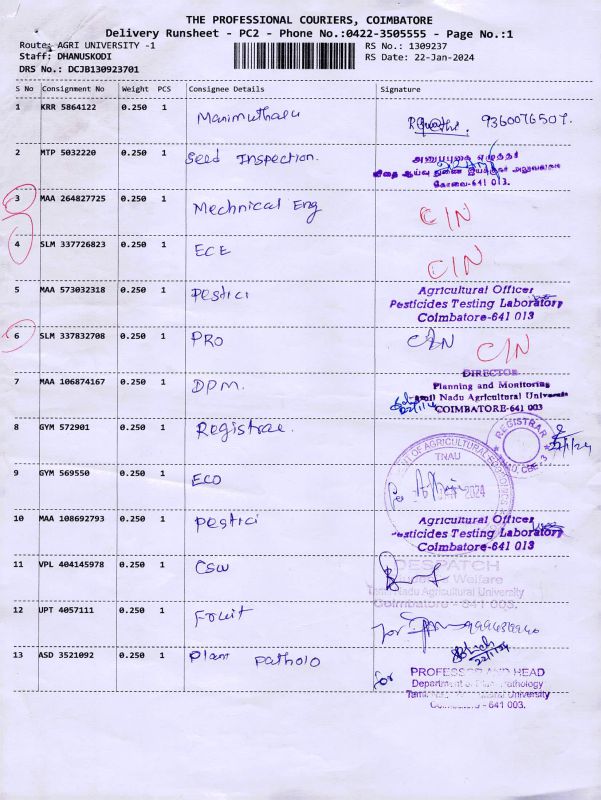 THE PROFESSIONAL COURIERS, COIMBATORE
Delivery Runsheet - PC2 - Phone No.:0422-3505555 - Page No.:1
Route: AGRI UNIVERSITY -1 RS No.: 1309237
Staff: DHANUSKODI RS Date: 22-Jan-2024
DRS No.: DCJB130923701
S No Consignment No Weight PCS Consignee Details Signature
1 KRR 5864122 0.250 1 Manimuthalu 9360076507.
2 MTP 5032220 0.250 1 Seed Inspection.
கோவை-641 013.
3 MAA 264827725 0.250 1 Mechnical Eng C/N
4 SLM 337726823 0.250 1 ECE C/N
5 MAA 573032318 0.250 1 Pestici Agricultural Officer
Pesticides Testing Laboratory
Coimbatore-641 013
6 SLM 337832708 0.250 1 PRO C/N C/N
DIRECTOR
7 MAA 106874167 0.250 1 DPM. Planning and Monitoring
Tamil Nadu Agricultural University
COIMBATORE-641 003
8 GYM 572901 0.250 1 Registrar. REGISTRAR
TNAU, CBE-3
22/1/24
9 GYM 569550 0.250 1 ECO TNAU
2024
10 MAA 108692793 0.250 1 Pestici Agricultural Officer
Pesticides Testing Laboratory
Coimbatore-641 013
11 VPL 404145978 0.250 1 CSW DESPATCH
Welfare
Tamil Nadu Agricultural University
Coimbatore - 641 003.
12 UPT 4057111 0.250 1 Fruit for
22/1/24
13 ASD 3521092 0.250 1 Plant Patholo for PROFESSOR AND HEAD
Department of Plant Pathology
University
- 641 003.